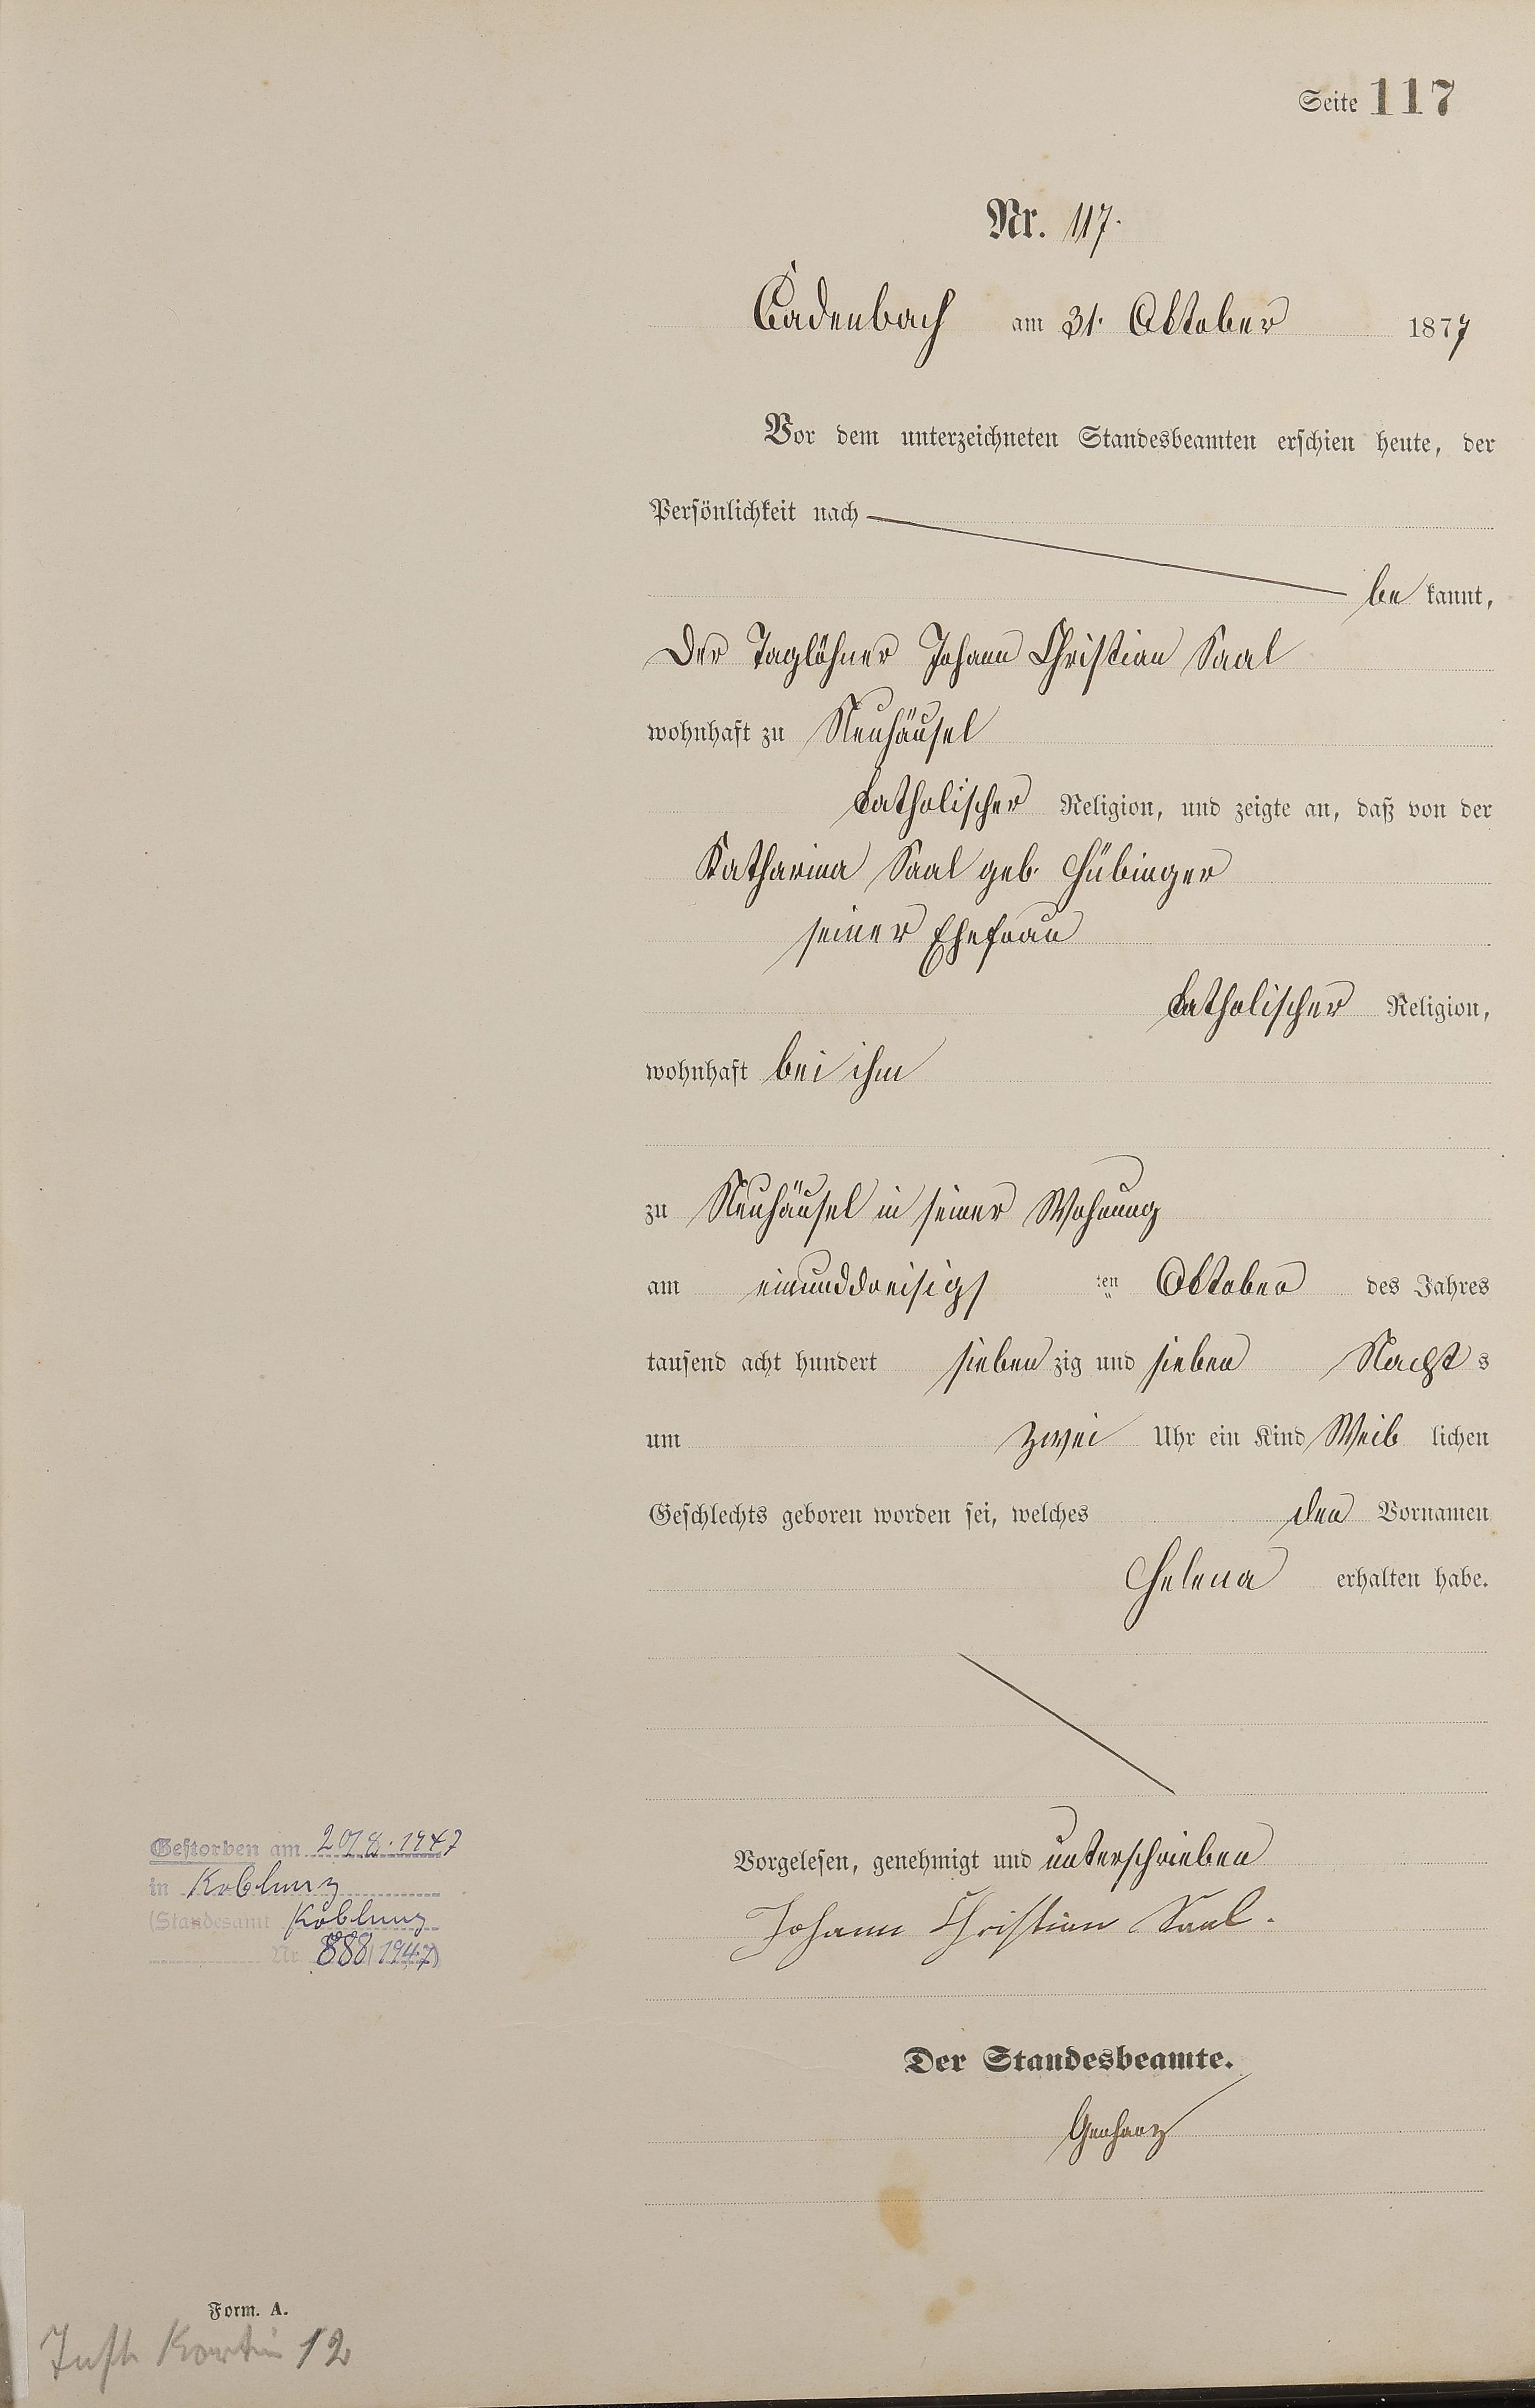 Seite 117
Nr. 117.
Cadenbach am 31. Oktober 1877
Vor dem unterzeichneten Standesbeamten erschien heute, der
Persönlichkeit nach
be kannt,
Der Taglöhner Johann Christian Saal
wohnhaft zu Neuhäusel
katholischer Religion, und zeigte an, daß von der
Katharina Saal geb. Hübinger
seiner Ehefrau
katholischer Religion,
wohnhaft bei ihm
zu Neuhäusel in seiner Wohnung
am einunddreisigs ten Oktober des Jahres
tausend acht hundert sieben zig und sieben Nacht s
um zwei Uhr ein Kind Weib lichen
Geschlechts geboren worden sei, welches den Vornamen
Helena erhalten habe.
Vorgelesen, genehmigt und unterschrieben
Johann Christian Saal.
Der Standesbeamte.
Gestorben am 1947
in Koblenz
(Standesamt Koblenz
Nr. 888/1947)
Form. A.
12